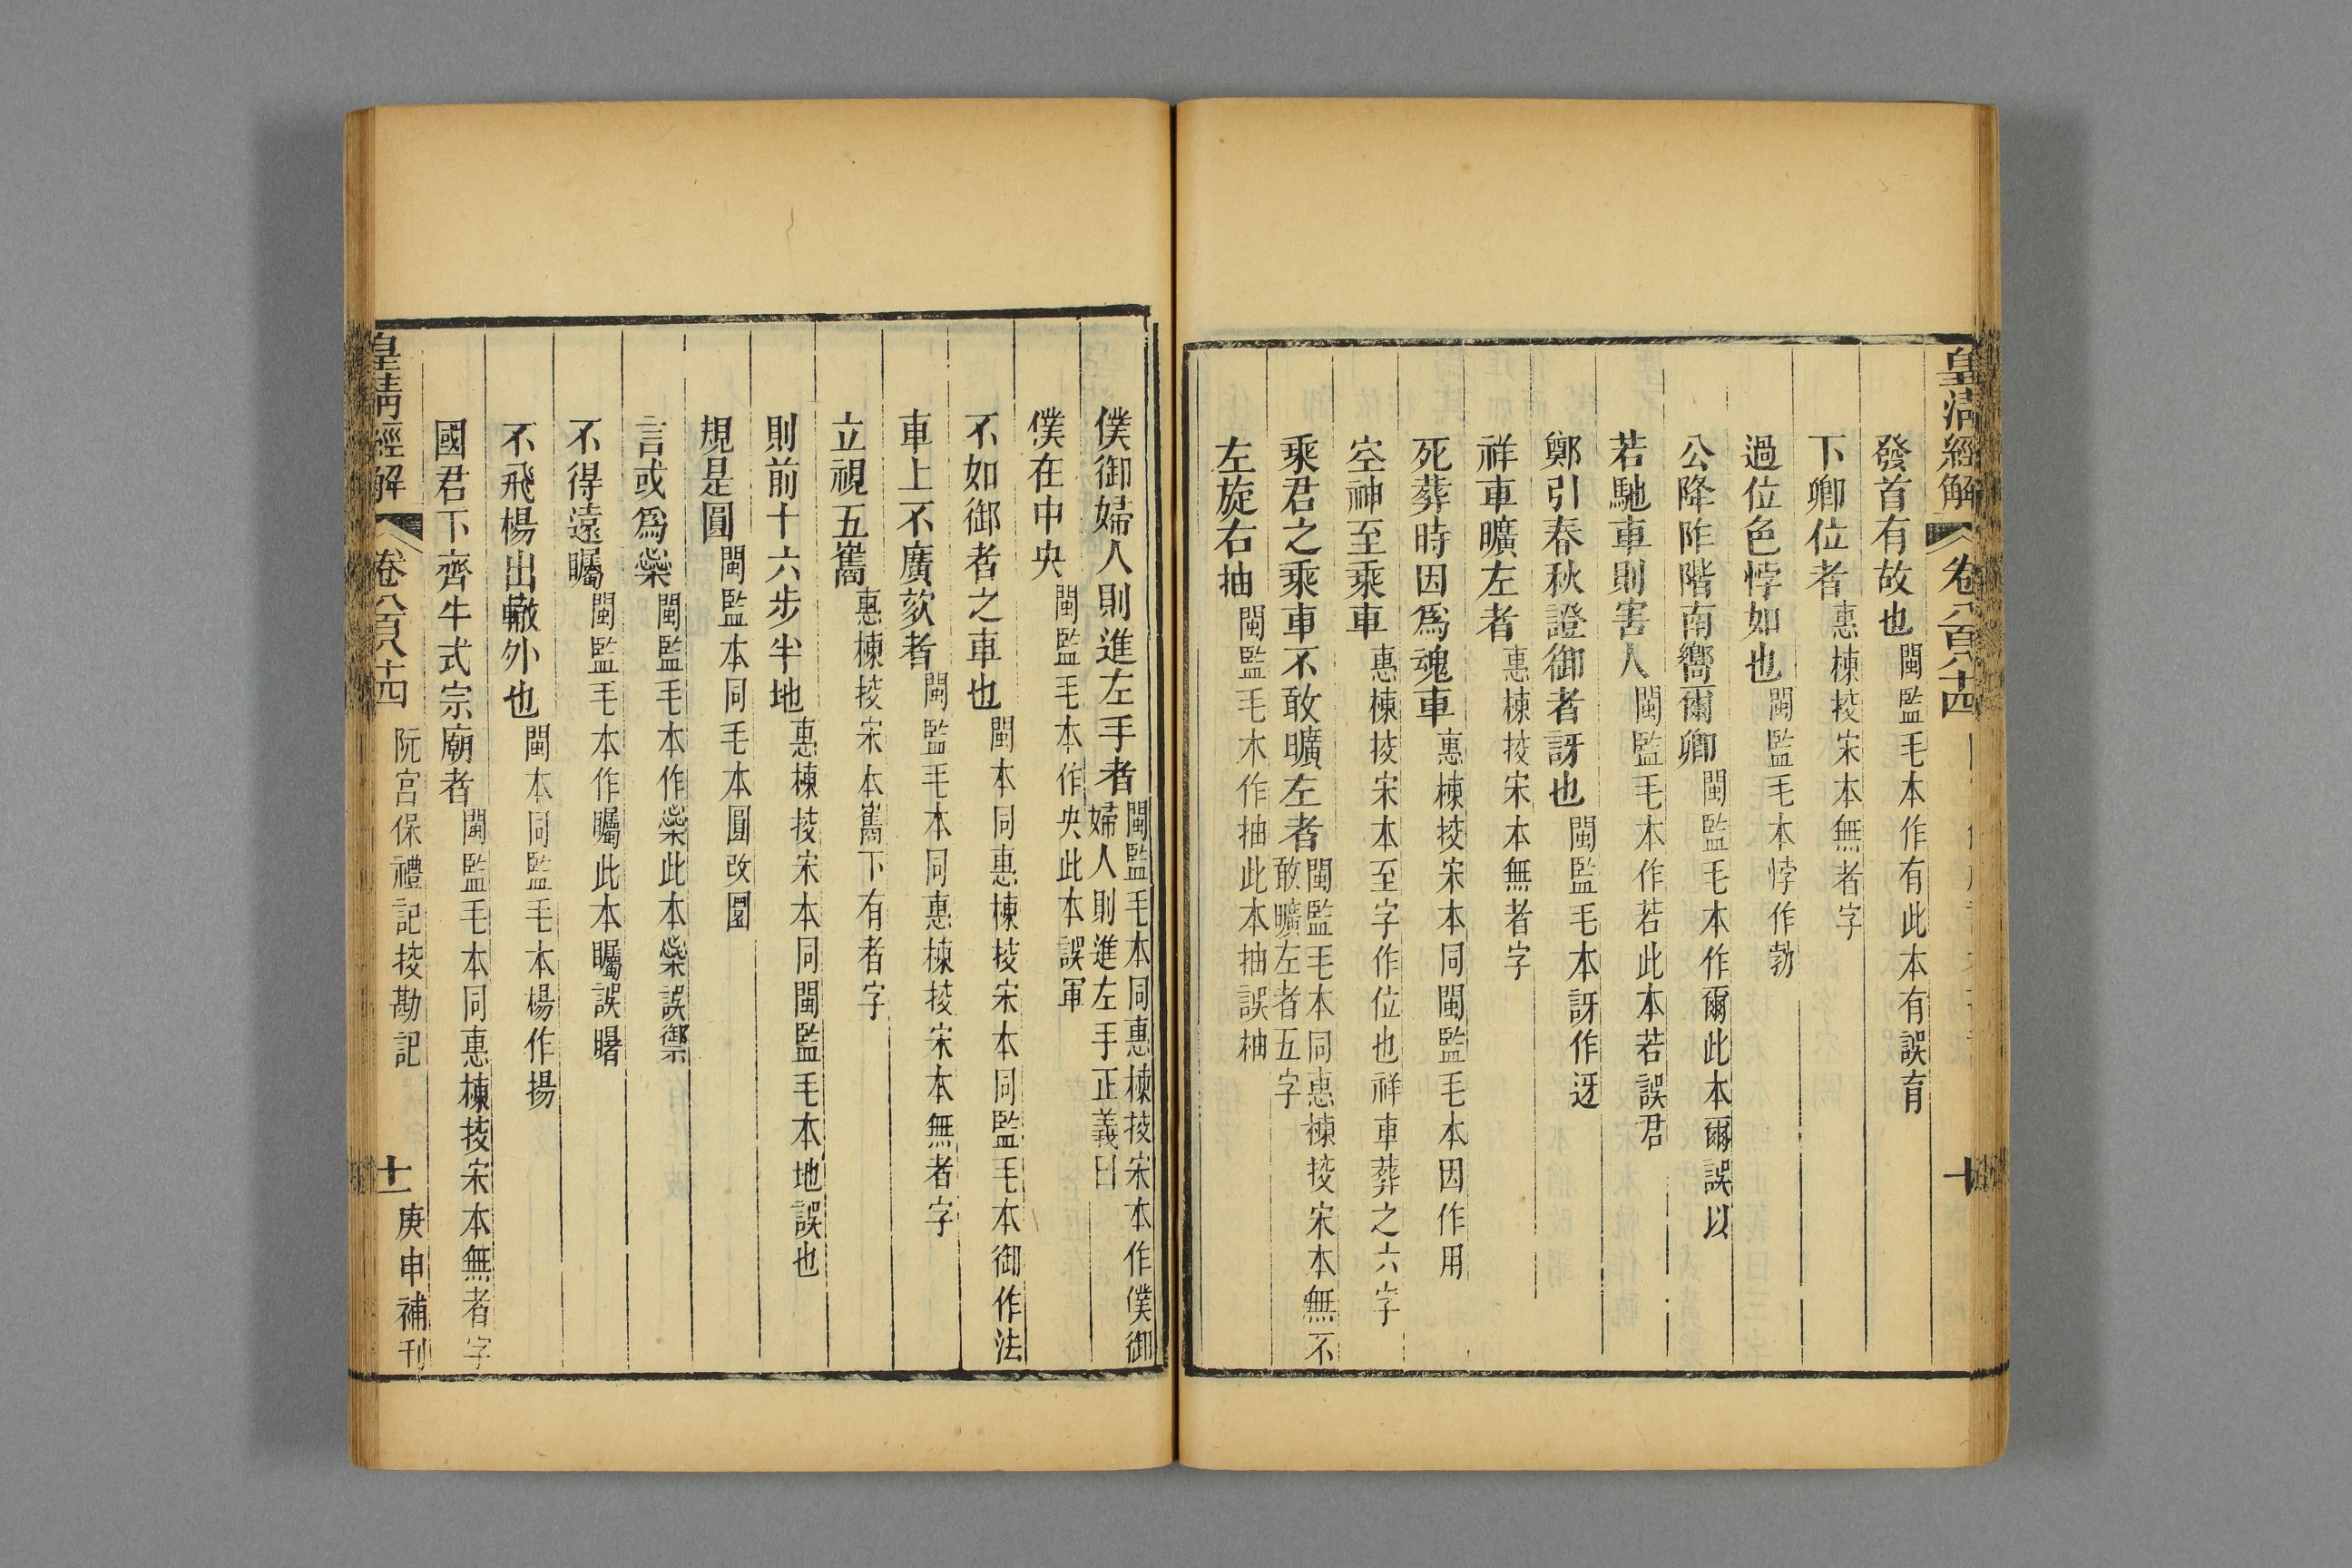 皇清經解 卷八百八十四 十
發首有故也閩監毛本作有此本有誤育
下卿位者惠棟挍宋本無者字
過位色悖如也閩監毛本悖作勃
公降阼階南嚮爾卿閩監毛本作爾此本爾誤以
若馳車則害人閩監毛本作若此本若誤君
鄭引春秋證御者訝也閩監毛本訝作迓
祥車曠左者惠棟挍宋本無者字
死葬時因爲魂車惠棟挍宋本同閩監毛本因作用
空神至乘車惠棟挍宋本至字作位也祥車葬之六字
乘君之乘車不敢曠左者閩監毛本同惠棟挍宋本無不敢曠左者五字
左旋右抽閩監毛木作抽此本抽誤柚
僕御婦人則進左手者閩監毛本同惠棟挍宋本作僕御婦人則進左手正義曰
僕在中央閩監毛本作央此本誤軍
不如御者之車也閩本同惠棟挍宋本同監毛本御作法
車上不廣欬者閩監毛本同惠棟挍宋本無者字
立視五嶲惠棟挍宋本嶲下有者字
則前十六步半地惠棟挍宋本同閩監毛本地誤也
規是圓閩監本同毛本圓改圜
言或爲橤閩監毛本作橤此本橤誤禦
不得遠矚閩監毛本作矚此本矚誤曙
不飛楊出轍外也閩本同監毛本楊作揚
國君下齊牛式宗廟者閩監毛本同惠棟挍宋本無者字
皇清經解 卷八百八十四 阮宮保禮記挍勘記 十一 庚申補刊